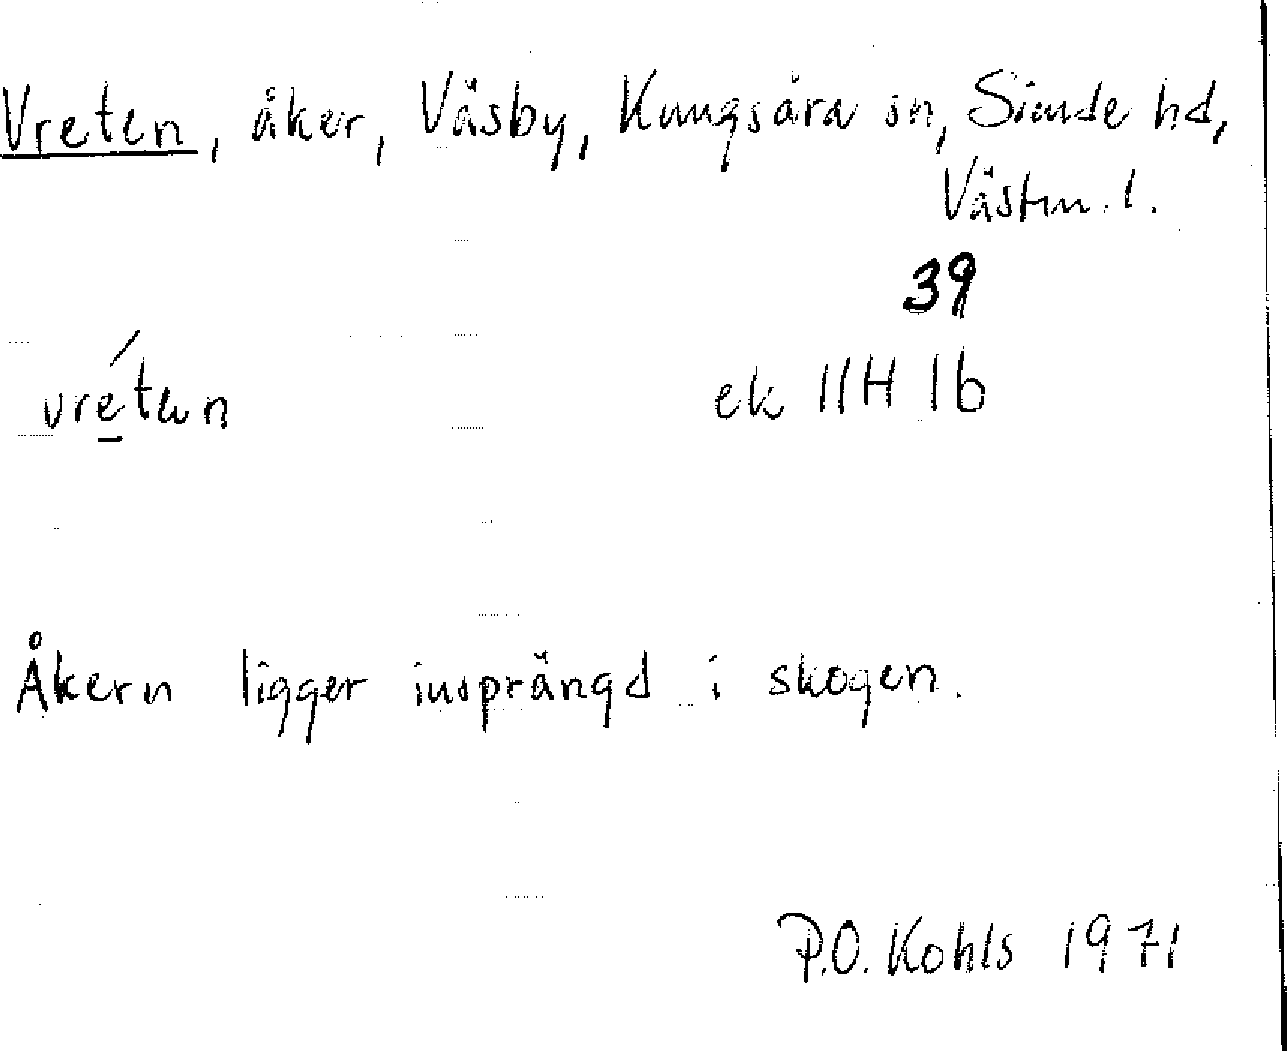 Vreten, åker, Väsby, Kungsåra sn, Siende hd,
Västm. l.
39
vre̲´tan ek 11H 1b
Åkern ligger insprängd i skogen.
P.O. Kohls 1971